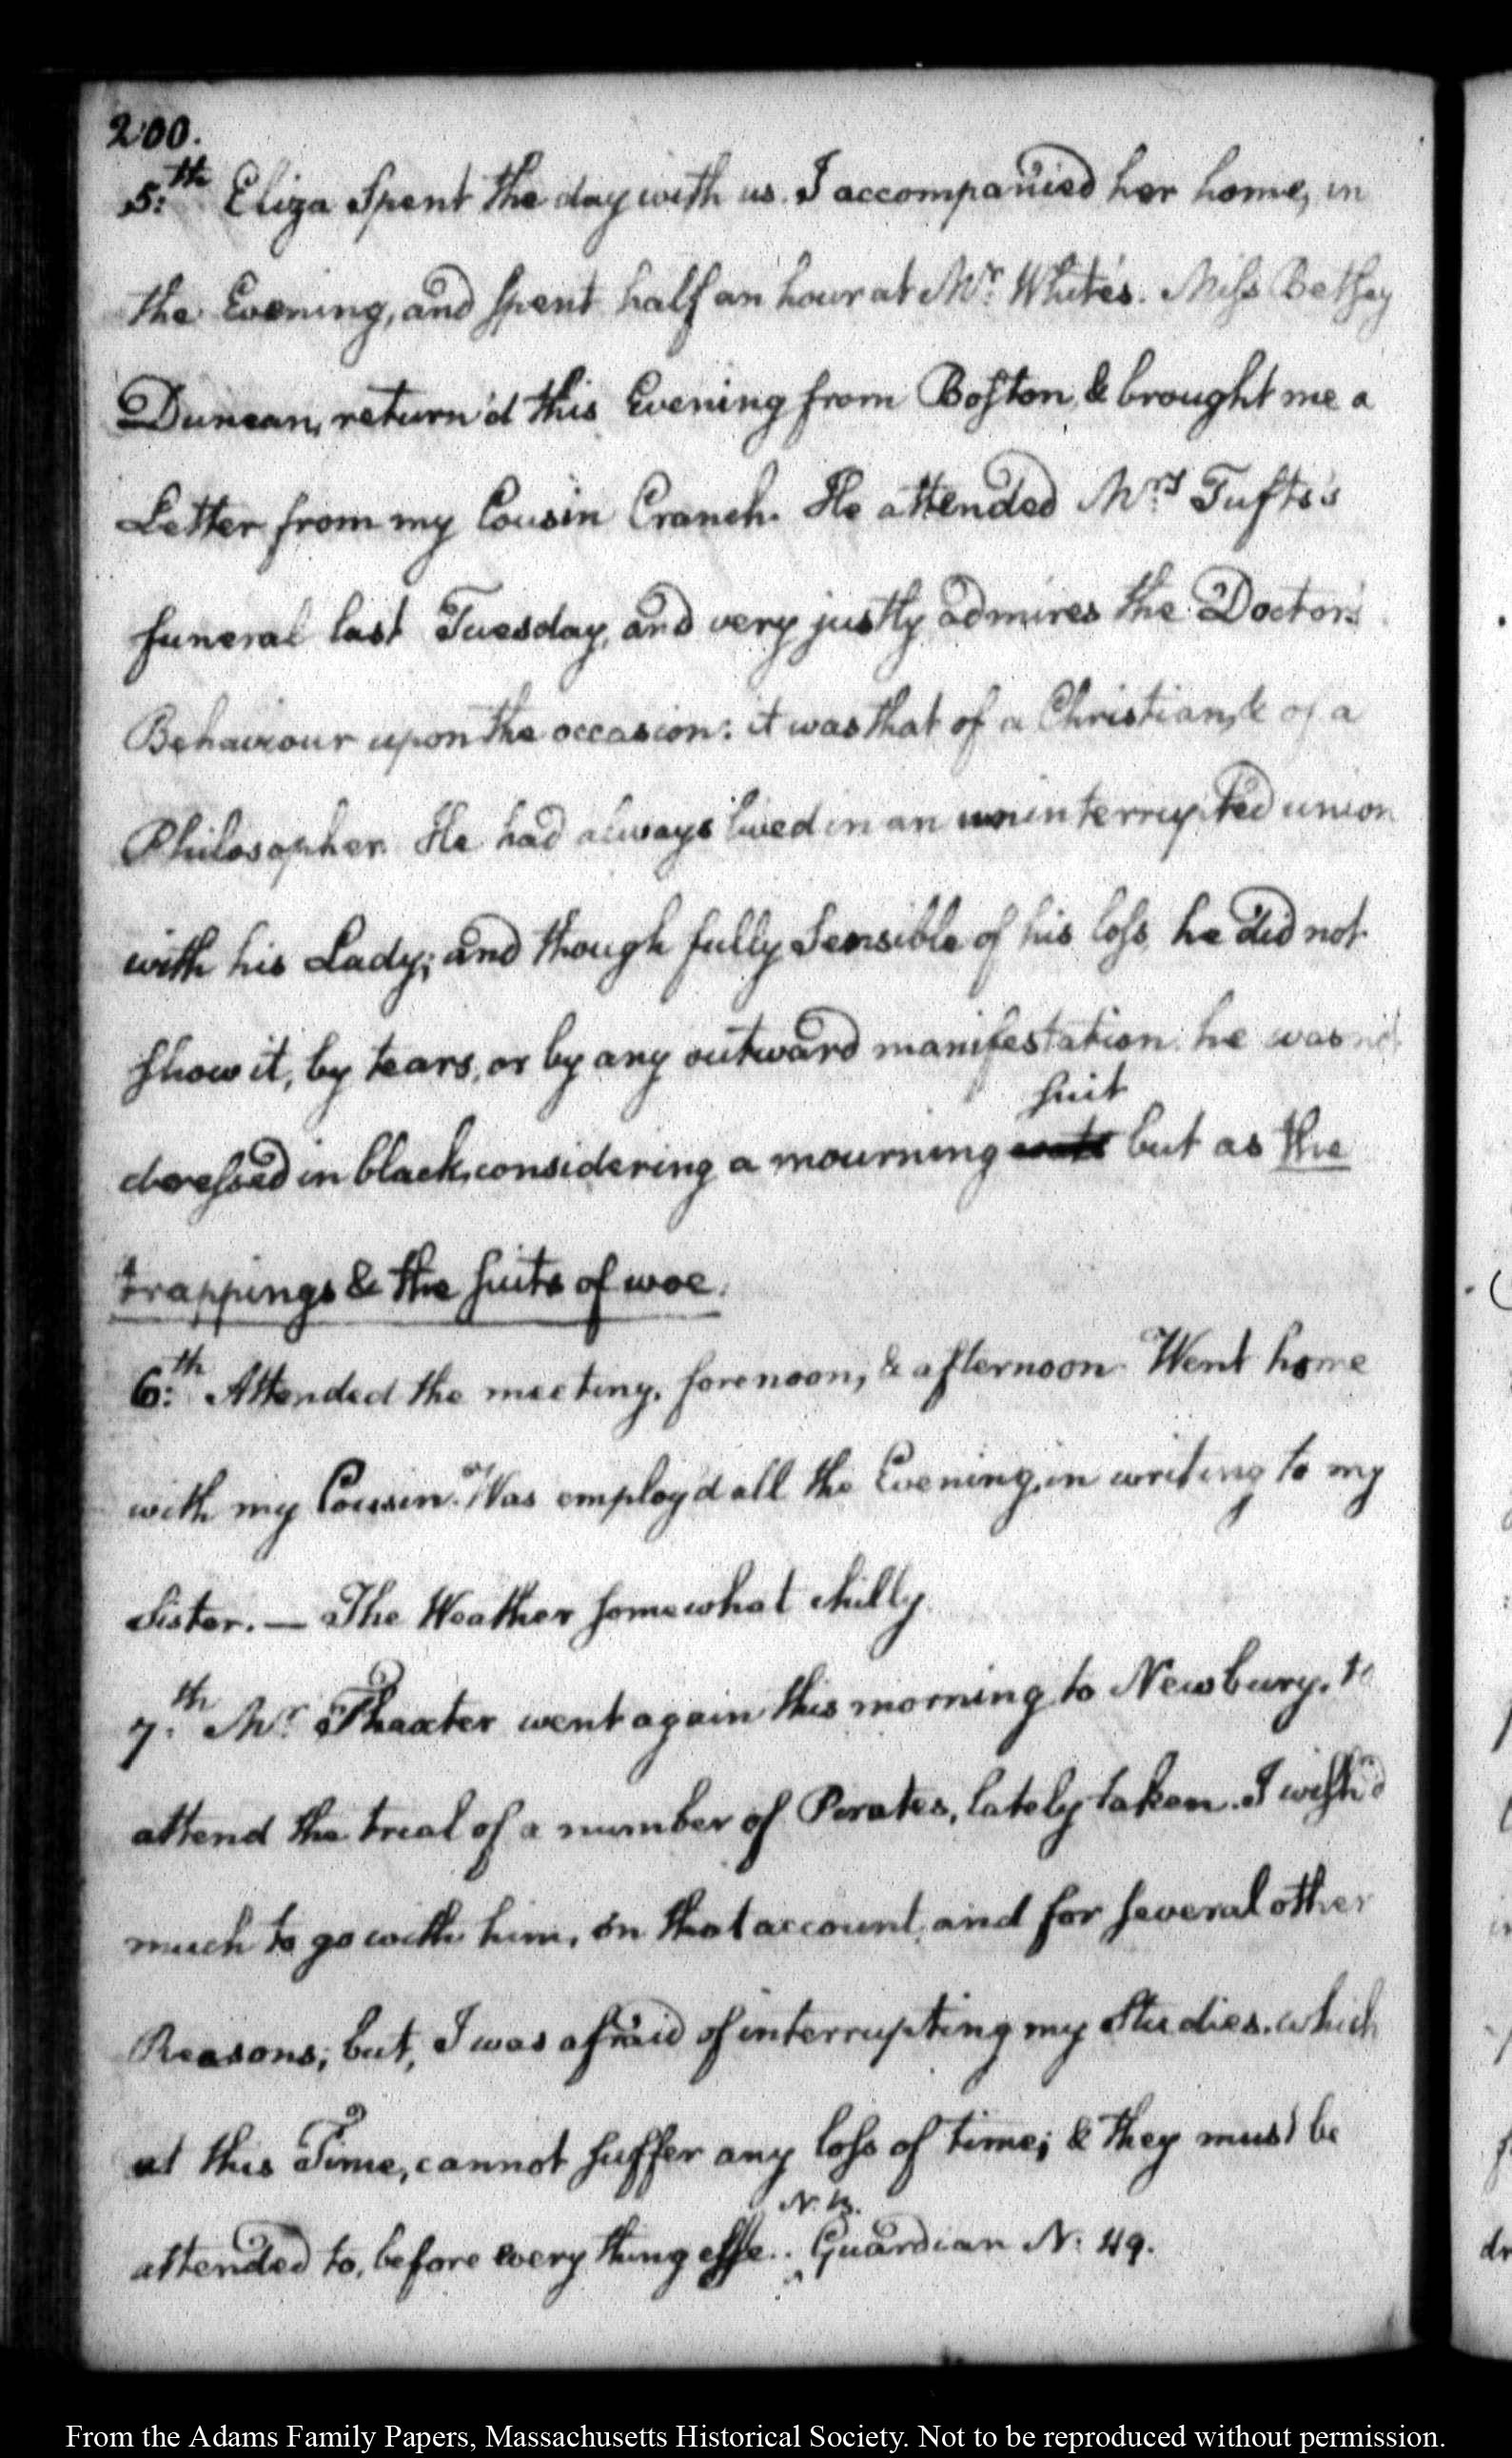 200.
5:th Eliza Spent the day with us. I accompanied her home, in
the Evening, and Spent half an hour at Mr: White's. Miss Betsey
Duncan, return'd this Evening from Boston, & brought me a
Letter from my Cousin Cranch. He attended Mrs Tufts's
funeral last Tuesday, and very justly admires the Doctor's
Behaviour upon the occasion: it was that of a Christian, & of a
Philosopher. He had always lived in an uninterrupted union
with his Lady; and though fully Sensible of his loss, he did not
show it, by tears, or by any outward manifestation. he was not
suit
dressed in black, considering a mourning but as the
trappings & the suits of woe.
6:th Attended the meeting, forenoon, & afternoon. Went home
with my Cousin. Was employ'd all the Evening, in writing to my
Sister. — The Weather somewhat chilly
7:th Mr: Thaxter went again this morning to Newbury, to
attend the trial of a number of Pirates, lately taken. I wish'd
much to go with him, on that account, and for several other
Reasons; but, I was afraid of interrupting my Studies, which
at this Time, cannot suffer any loss of time; & they must be
N. B.
attended to, before every thing else.. Guardian N: 49.
From the Adams Family Papers, Massachusetts Historical Society. Not to be reproduced without permission.